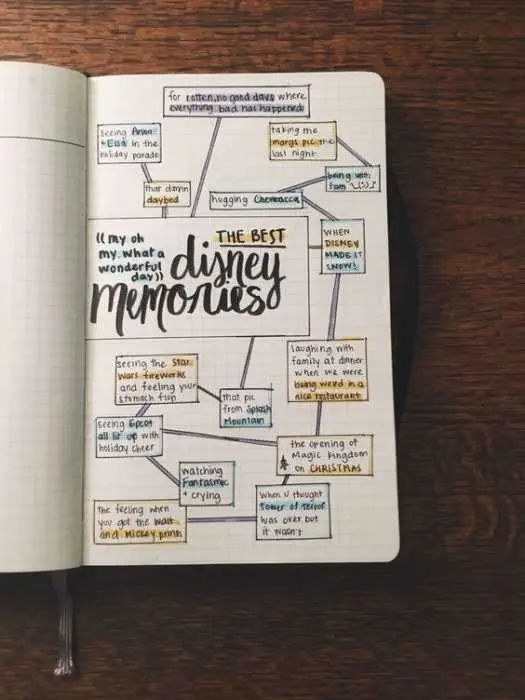 for rotten, no good days where
everything bad has happened
seeing Anna
+ Elsa in the
holiday parade
taking me
margs pic the
last night
that damn
daybed
being with
fam
hugging Chewbacca
((my oh
my, what a
wonderful
day))
THE BEST
disney
memories
WHEN
DISNEY
MADE IT
SNOW!
seeing the Star
Wars fireworks
and feeling your
stomach flip
that pic
from Splash
Mountain
laughing with
family at dinner
when we were
being weird in a
nice restaurant
seeing Epcot
all lit up with
holiday cheer
the opening of
Magic Kingdom
on CHRISTMAS
watching
Fantasmic
+ crying
the feeling when
you got the Walt
and Mickey print
when u thought
Tower of Terror
was over but
it wasn't